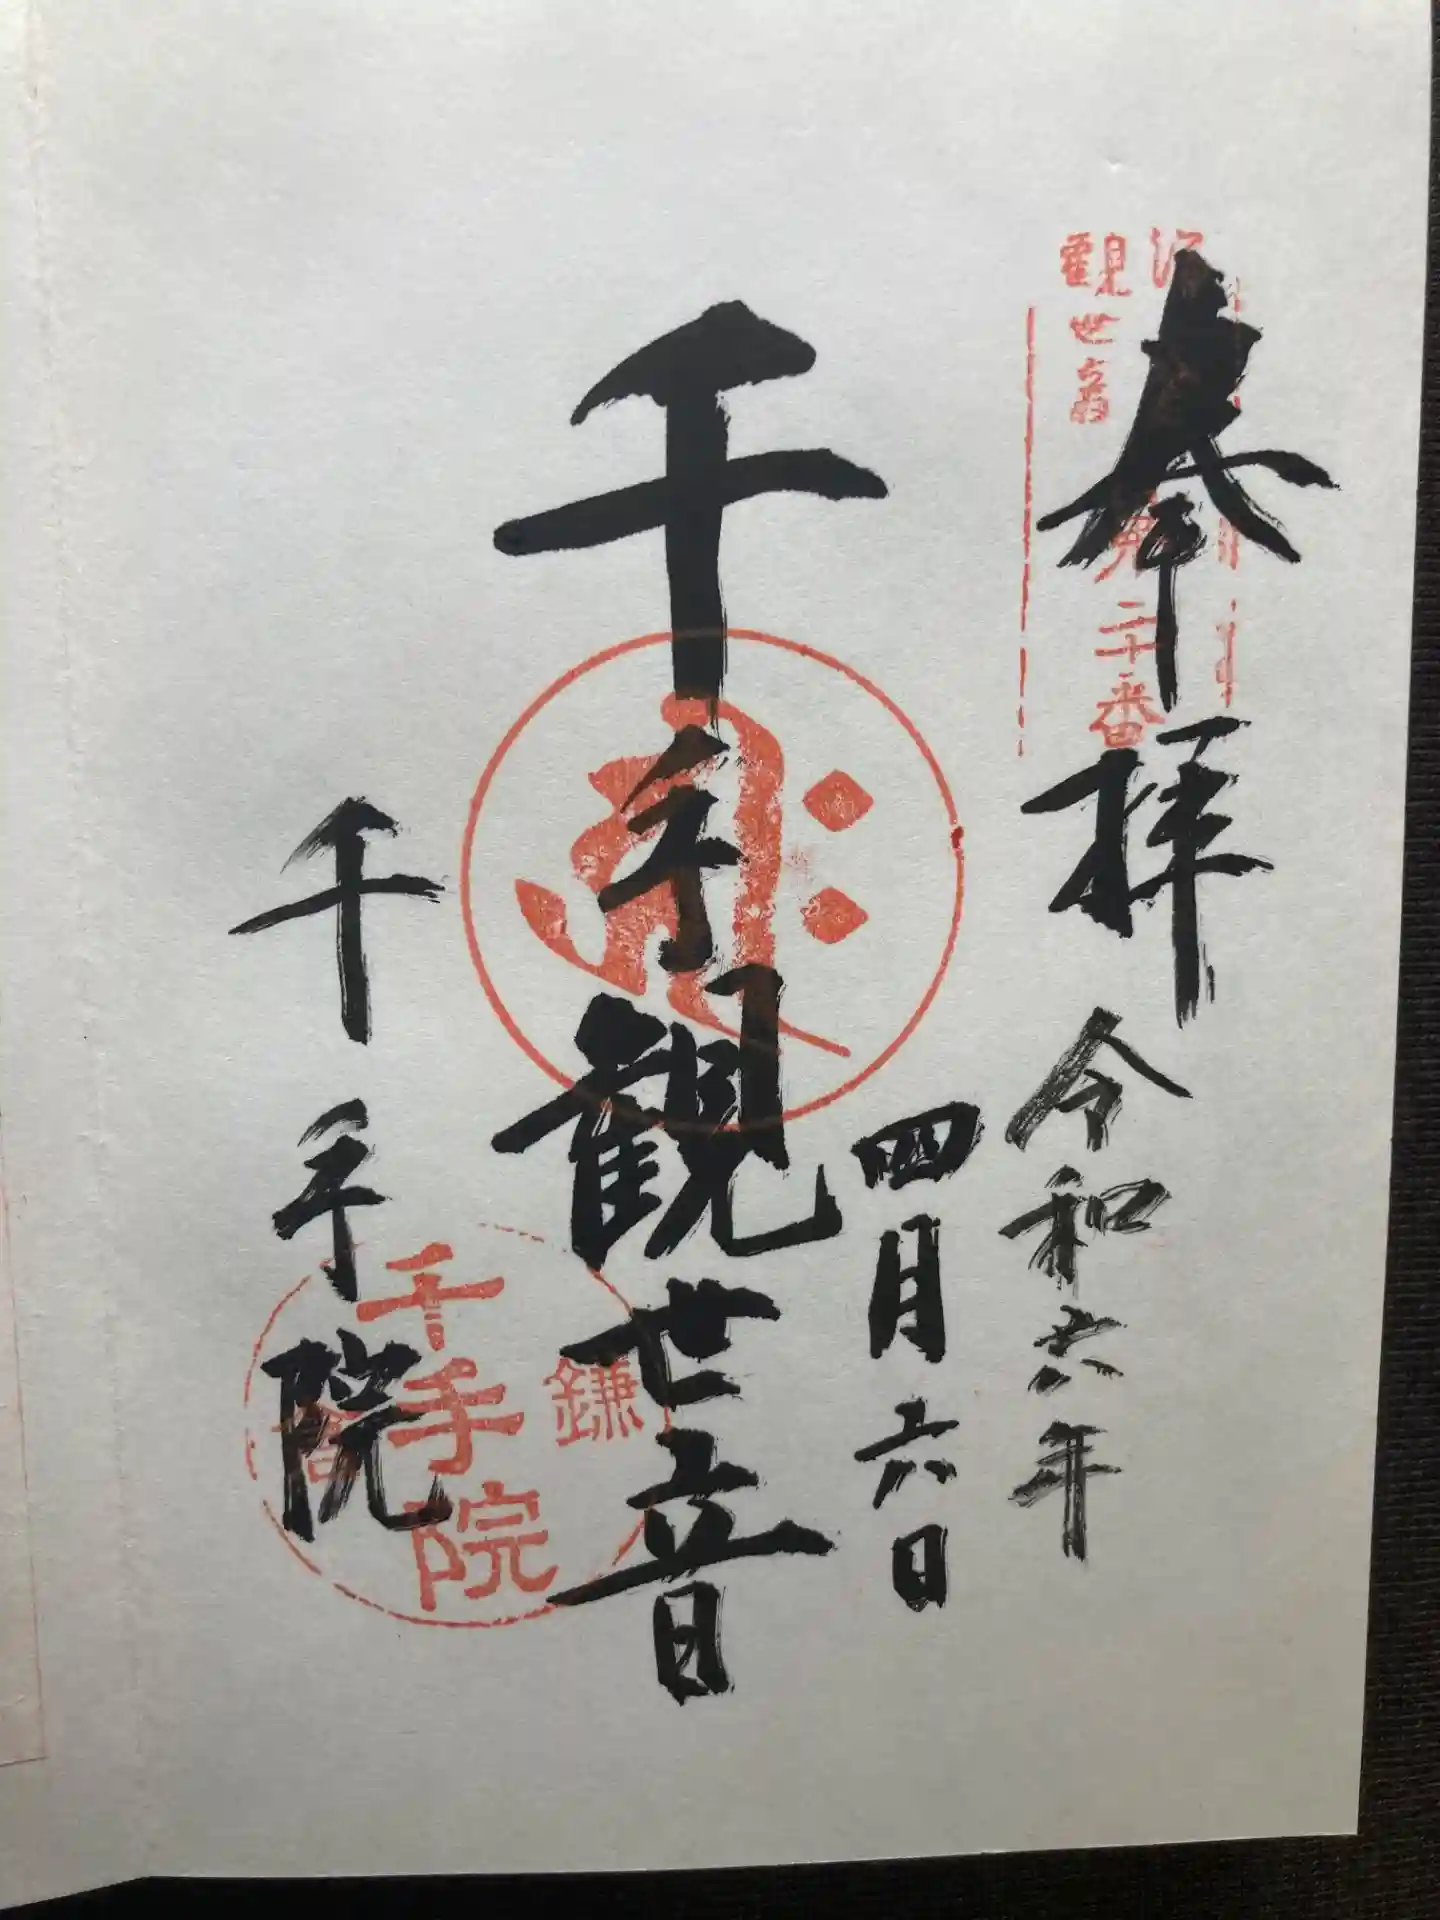 奉拝
令和六年
四月六日
千手観世音
千手院
観世音
二十番
千手院
鎌